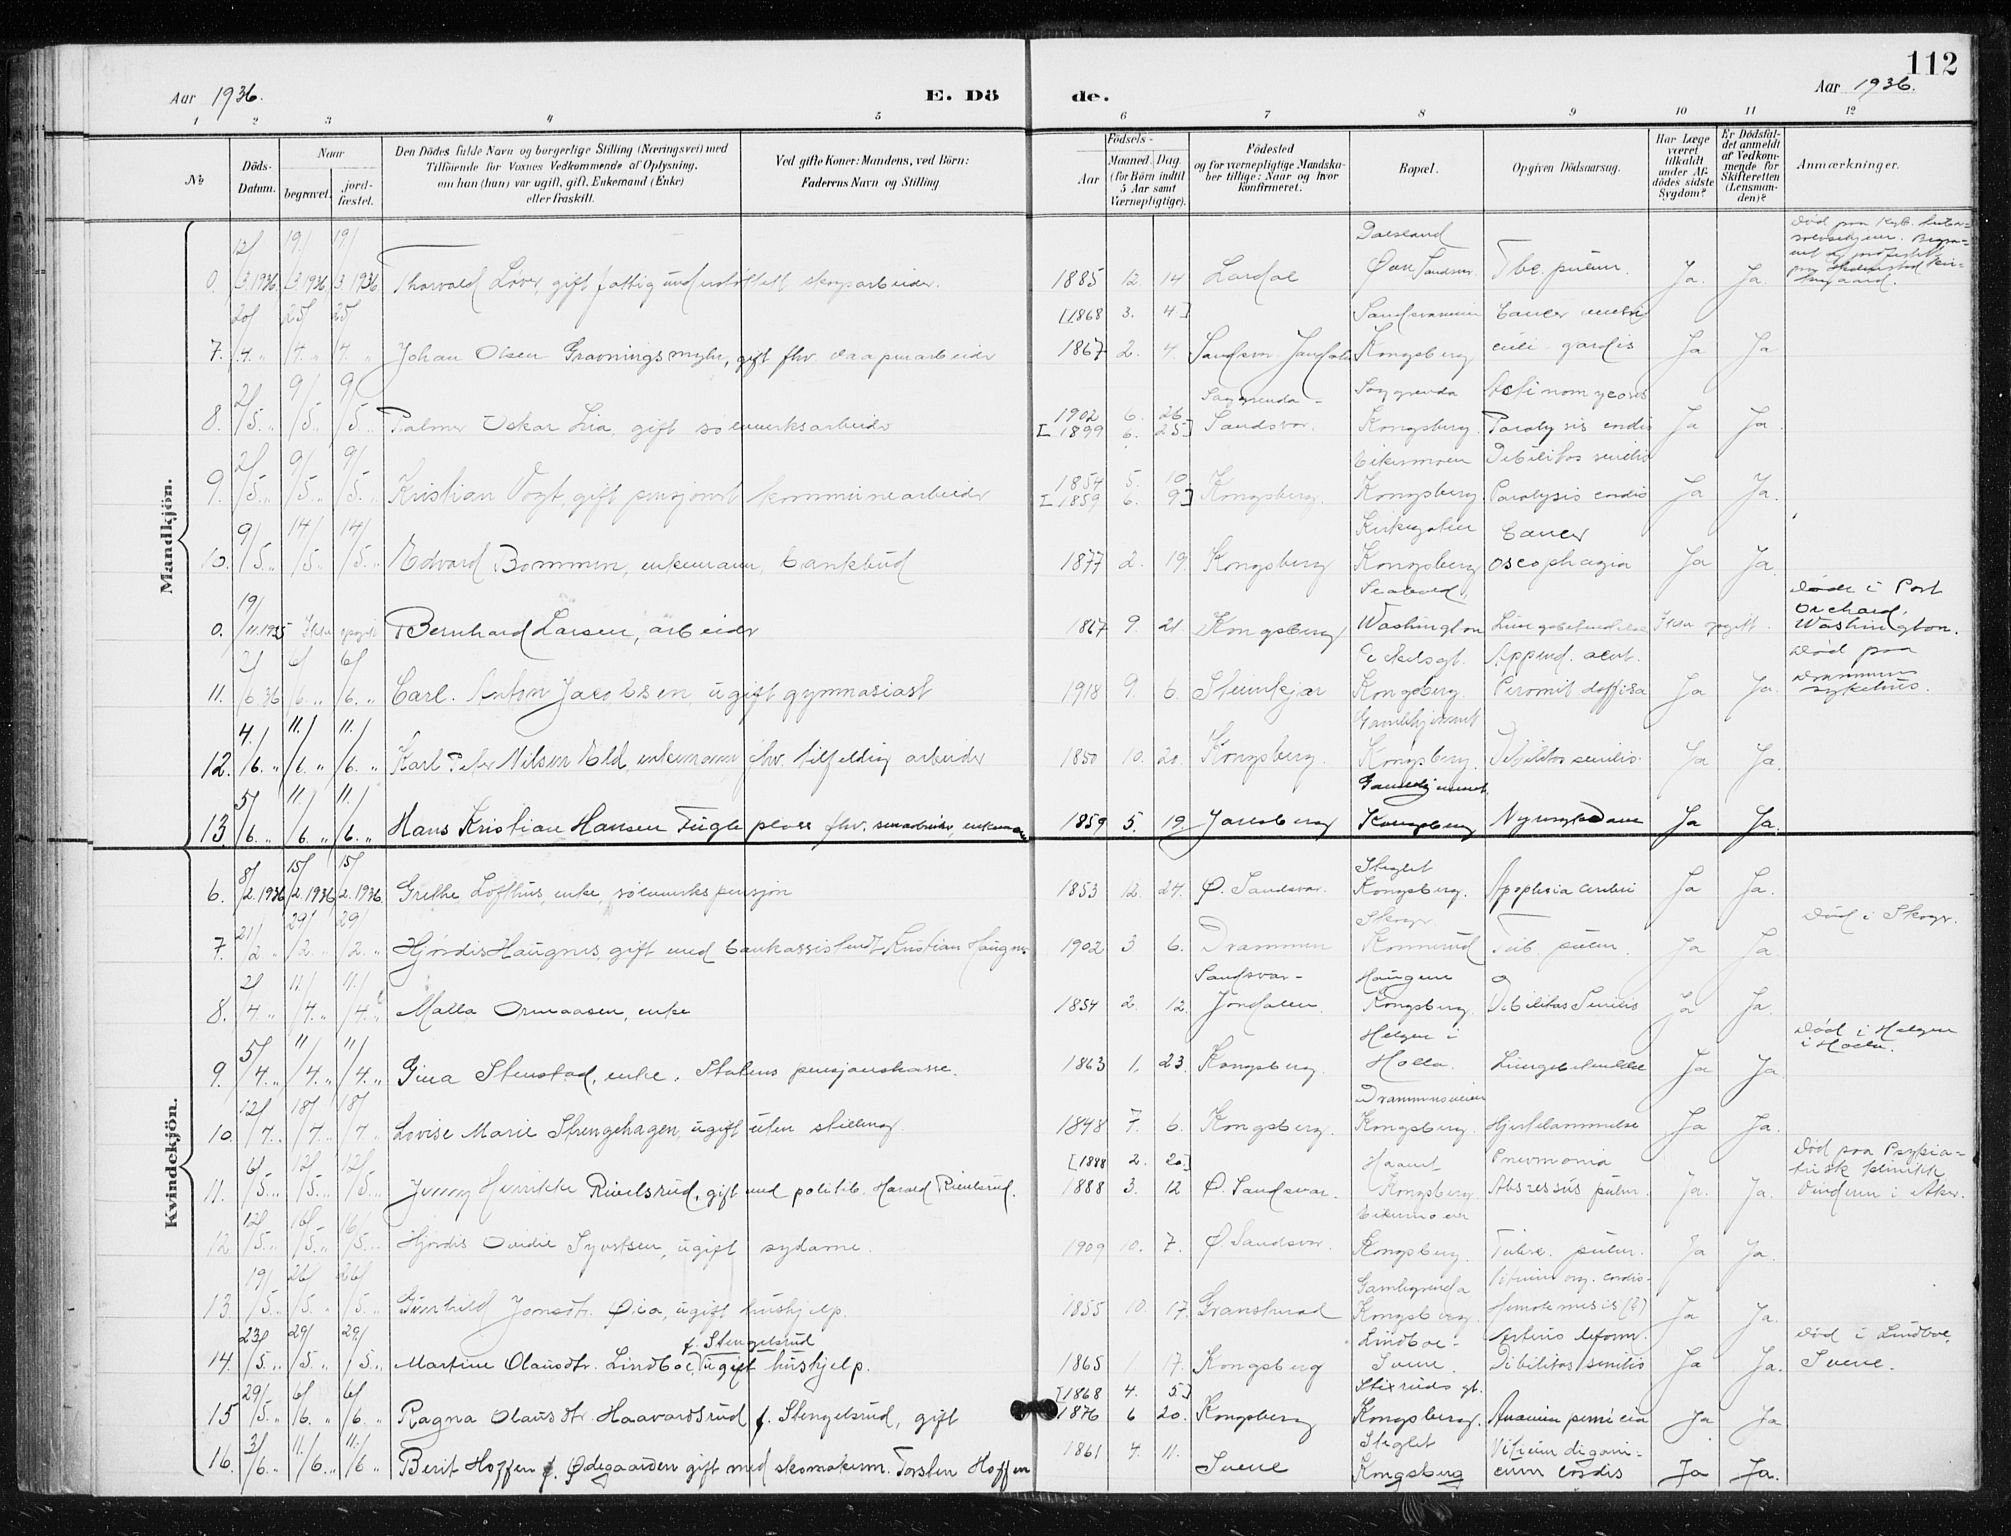 112
Aar 1936.
E. Dö
de.
Aar 1936.
1 2 3 4 5 6 7 8 9 10 11 12
№
Döds-
Datum.
Naar
begravet.
jord-
fæstet.
Den Dödes fulde Navn og borgerlige Stilling (Næringsvei) med
Tilföiende for Voxnes Vedkommende af Oplysning,
om han (hun) var ugift, gift, Enkemand (Enke)
eller fraskilt.
Ved gifte Koner: Mandens, ved Börn:
Faderens Navn og Stilling
Födsels-
Aar
Maaned. Dag.
(for Börn indtil
5 Aar samt
Værnepligtige).
Födested
og for værnepligtige Mandska-
ber tillige: Naar og hvor
konfirmeret.
Bopæl.
Opgiven Dödsaarsag.
Har Læge
været
tilkaldt
under Af-
dödes sidste
Sygdom?
Er Dödsfal-
det anmeldt
af Vedkom-
mende for
Skifteretten
(Lensman-
den)?
Anmærkninger.
Mandkjön.
0. 12/3 1936 19/3 1936 19/3 1936 Thorvald Løver, gift fattigunderstøttet skogsarbeider. 1885 12 14 Lardal Sandsvær Tbc. pulm. Ja. Ja.
[1868 3. 4]
7. 20/4 25/4 25/4 Johan Olsen Gravningsmyhr, gift fhv. vaapenarbeider 1867 2. 4. Sandsvær Jondalen Kongsberg Cancer Ja Ja
8. 2/5 9/5 9/5 Palmer Oskar Lia, gift sølvverksarbeider 1902 6. 26 Saggrenda - Sandsvær. Saggrenda Kongsberg. Actinomycosis Paralysis cordis Ja Ja.
[1899 6. 25]
9. 2/5 9/5 9/5 Kristian Vogt, gift pensjonert kommunearbeider 1854 5. 10. Kongsberg. Eikermoen Kongsberg. Debilitas senilis Paralysis cordis Ja Ja.
[1859 6. 9]
10. 9/5 14/5 14/5 Edvard Bommen, enkemann, bankbud 1877 2. 19. Kongsberg Kirkegaten Kongsberg Cancer oseophagia Ja Ja.
0. 19/11.1935 Ikke opgitt Bernhard Larsen, arbeider 1867 9. 21 Kongsberg Seabold, Washington Lungebetendelse Ikke opgitt. Døde i Port Orchard, Washington.
11. 2/6 36 6/6 6/6 Carl. Anton Jacobsen, ugift gymnasiast 1918 9. 6. Steinkjær Eckelsgt. Kongsberg. Append. acut. Peromit diffisa Ja Ja. Død paa Drammens sykehus.
12. 4/6 11/6 11/6 Karl Peter Nilsen Eld, enkemann fhv. tilfeldig arbeider 1850 10. 20. Kongsberg. Gamlehjemmet Kongsberg. Debilitas senilis. Ja Ja.
13. 5/6 11/6 11/6 Hans Kristian Hansen Fugleplass fhv. enkemann 1859 5. 19 Jarlsberg Gamlehjemmet. Kongsberg Nyresykdom Ja Ja.
Kvindekjön.
6. 8/2.1936 15/2.1936 15/2.1936 Grethe Lofthus, enke, sølvverkspensjon 1853 12. 24. Ø. Sandsvær. Steglet Kongsberg. Apoplexia cerebri Ja Ja.
7. 21/2 29/2 29/2 Hjørdis Haugnes, gift med bankassistent Kristian Haugnes 1902 3 6. Drammen Skoger Konnerud Tub. pulm. Ja Ja. Død i Skoger.
8. 2/4 11/4 11/4 Malla Ormaasen, enke 1854 2. 12. Sandsvær - Jondalen. Haugene Kongsberg. Debilitas Senilis Ja Ja.
9. 5/4 11/4 11/4 Gina Stenstad, enke, Statens pensjonskasse. 1863 1. 23. Kongsberg. Helgen i Holla. Lungebetendelse Ja Ja. Død i Helgen i Holla.
10. 12/7 18/7 18/7 Lovise Marie Strengehagen, ugift uten stilling 1848 7. 6. Kongsberg. Drammensveien Kongsberg. Hjertelammelse Ja Ja.
[1888 2. 20.]
11. 6/5 12/5 12/5 Jenny Henrikke Rivelsrud, gift med politib. Harald Rivelsrud. 1888 3. 12 Ø. Sandsvær. Kongsberg. Pneumonia Abscessus pulm. Ja. Ja. Død paa Psykiatrisk klinikk Vinderen i Aker.
12. 12/5 16/5 16/5 Hjørdis Ovidie Syvertsen, ugift sydame. 1909 10. 7. Ø. Sandsvær. Eikermoen Kongsberg. Tuberc. pulm. Ja Ja.
13. 19/5 26/5 26/5 Gunhild Jonsdtr. Øia, ugift hushjelp. 1855 10. 17. Gransherad Gamlegrenda Kongsberg. Vitium org. cordis. Hemotemesis (?) Ja Ja.
14. 23/5 29/5 29/5 Martine Olausdtr. Lindboe, f. Stengelsrud ugift hushjelp. 1865 17. Kongsberg Lindboe - Svene. Artrius deform. Debilitas senilis Ja Ja. Død i Lindboe, Svene.
[1868 4. 5]
15 29/5 6/6 6/6 Ragna Olausdtr. Haavardsrud f. Stengelsrud, gift 1876 6 20. Kongsberg Stixruds gt. Kongsberg. Anæmia perniciosa Ja Ja
16. 3/6 11/6 11/6 Berit Hoffen f. Ødegaarden gift med skomakerm. Torsten Hoffen 1861 4. 11. Svene Steglet Kongsberg Vitium organicum cordis Ja Ja.